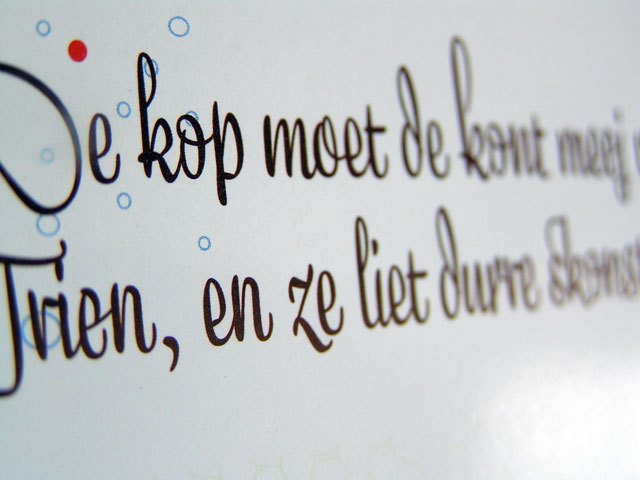 De kop moet de kont meej
Trien, en ze liet durre